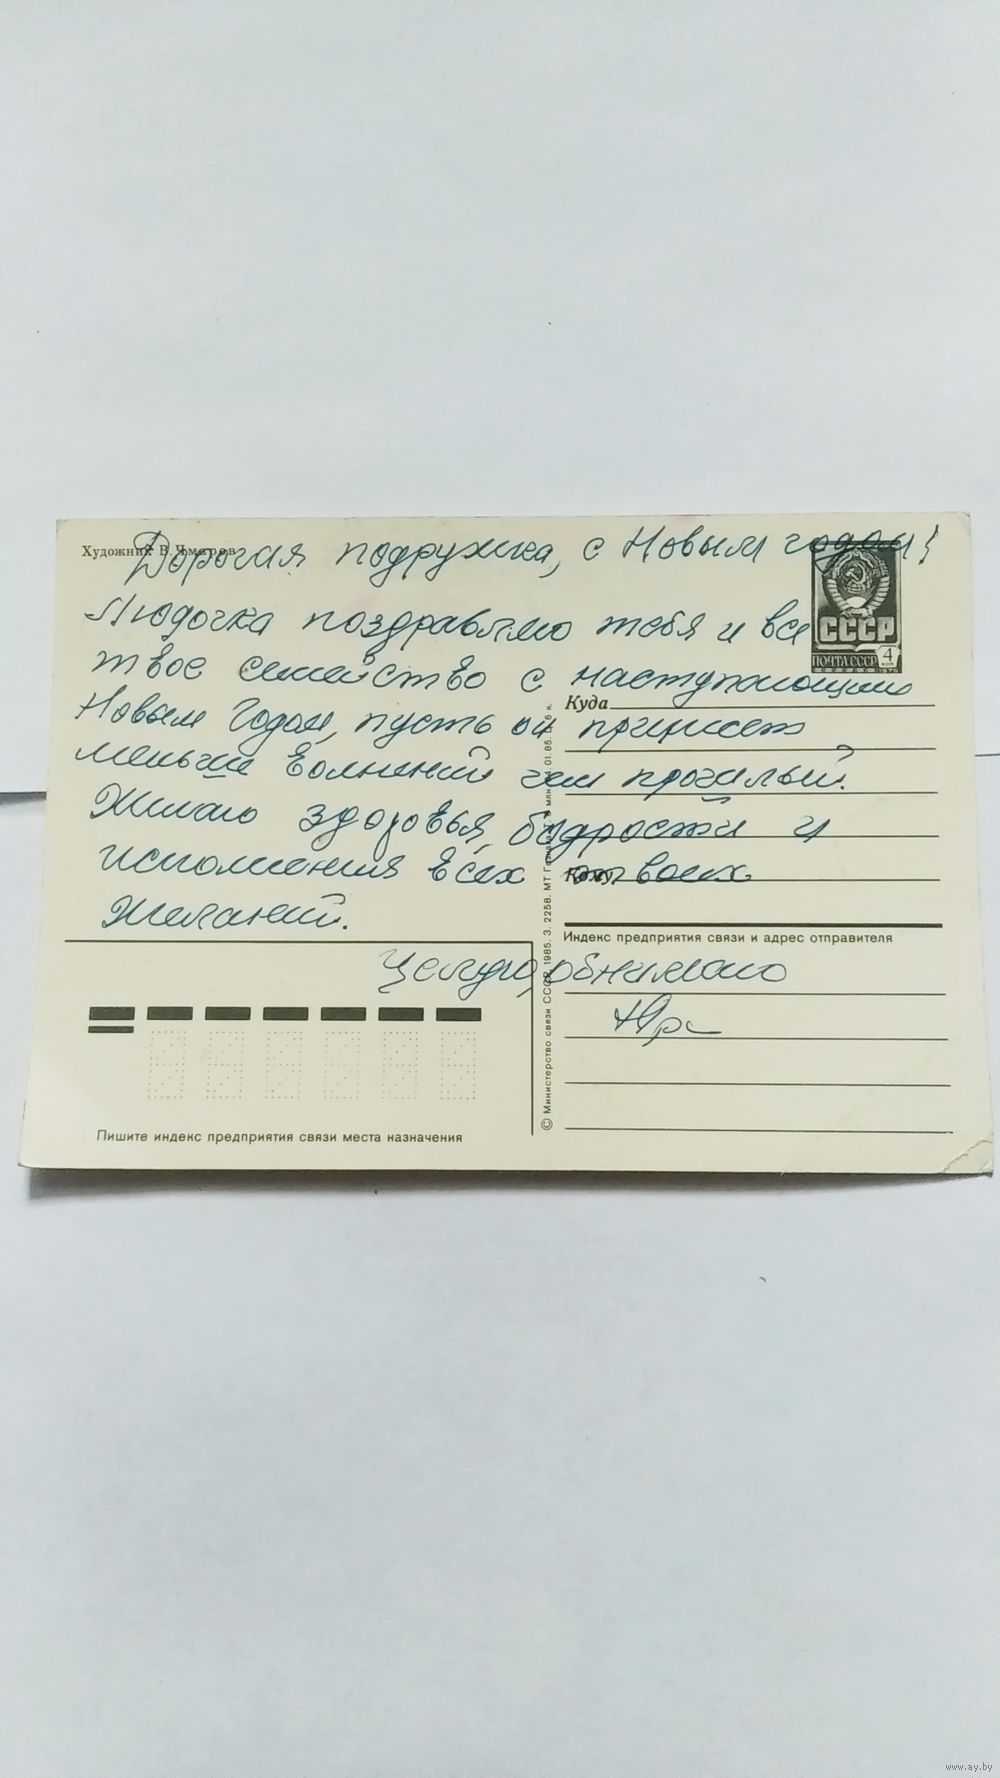 Художник В. Чмаров
Дорогая подружка, с Новым годом!
Людочка поздравляю тебя и все
твое семейство с наступающим
Новым Годом, пусть он принесет
меньше волнений чем прошлый.
Желаю здоровья, бодрости и
исполнения всех твоих
желаний.
Целую, обнимаю
СССР
ПОЧТА СССР
4
Куда
Кому
Индекс предприятия связи и адрес отправителя
© Министерство связи СССР, 1985. З. 2258. МТ Гознака.
Пишите индекс предприятия связи места назначения
www.ay.by